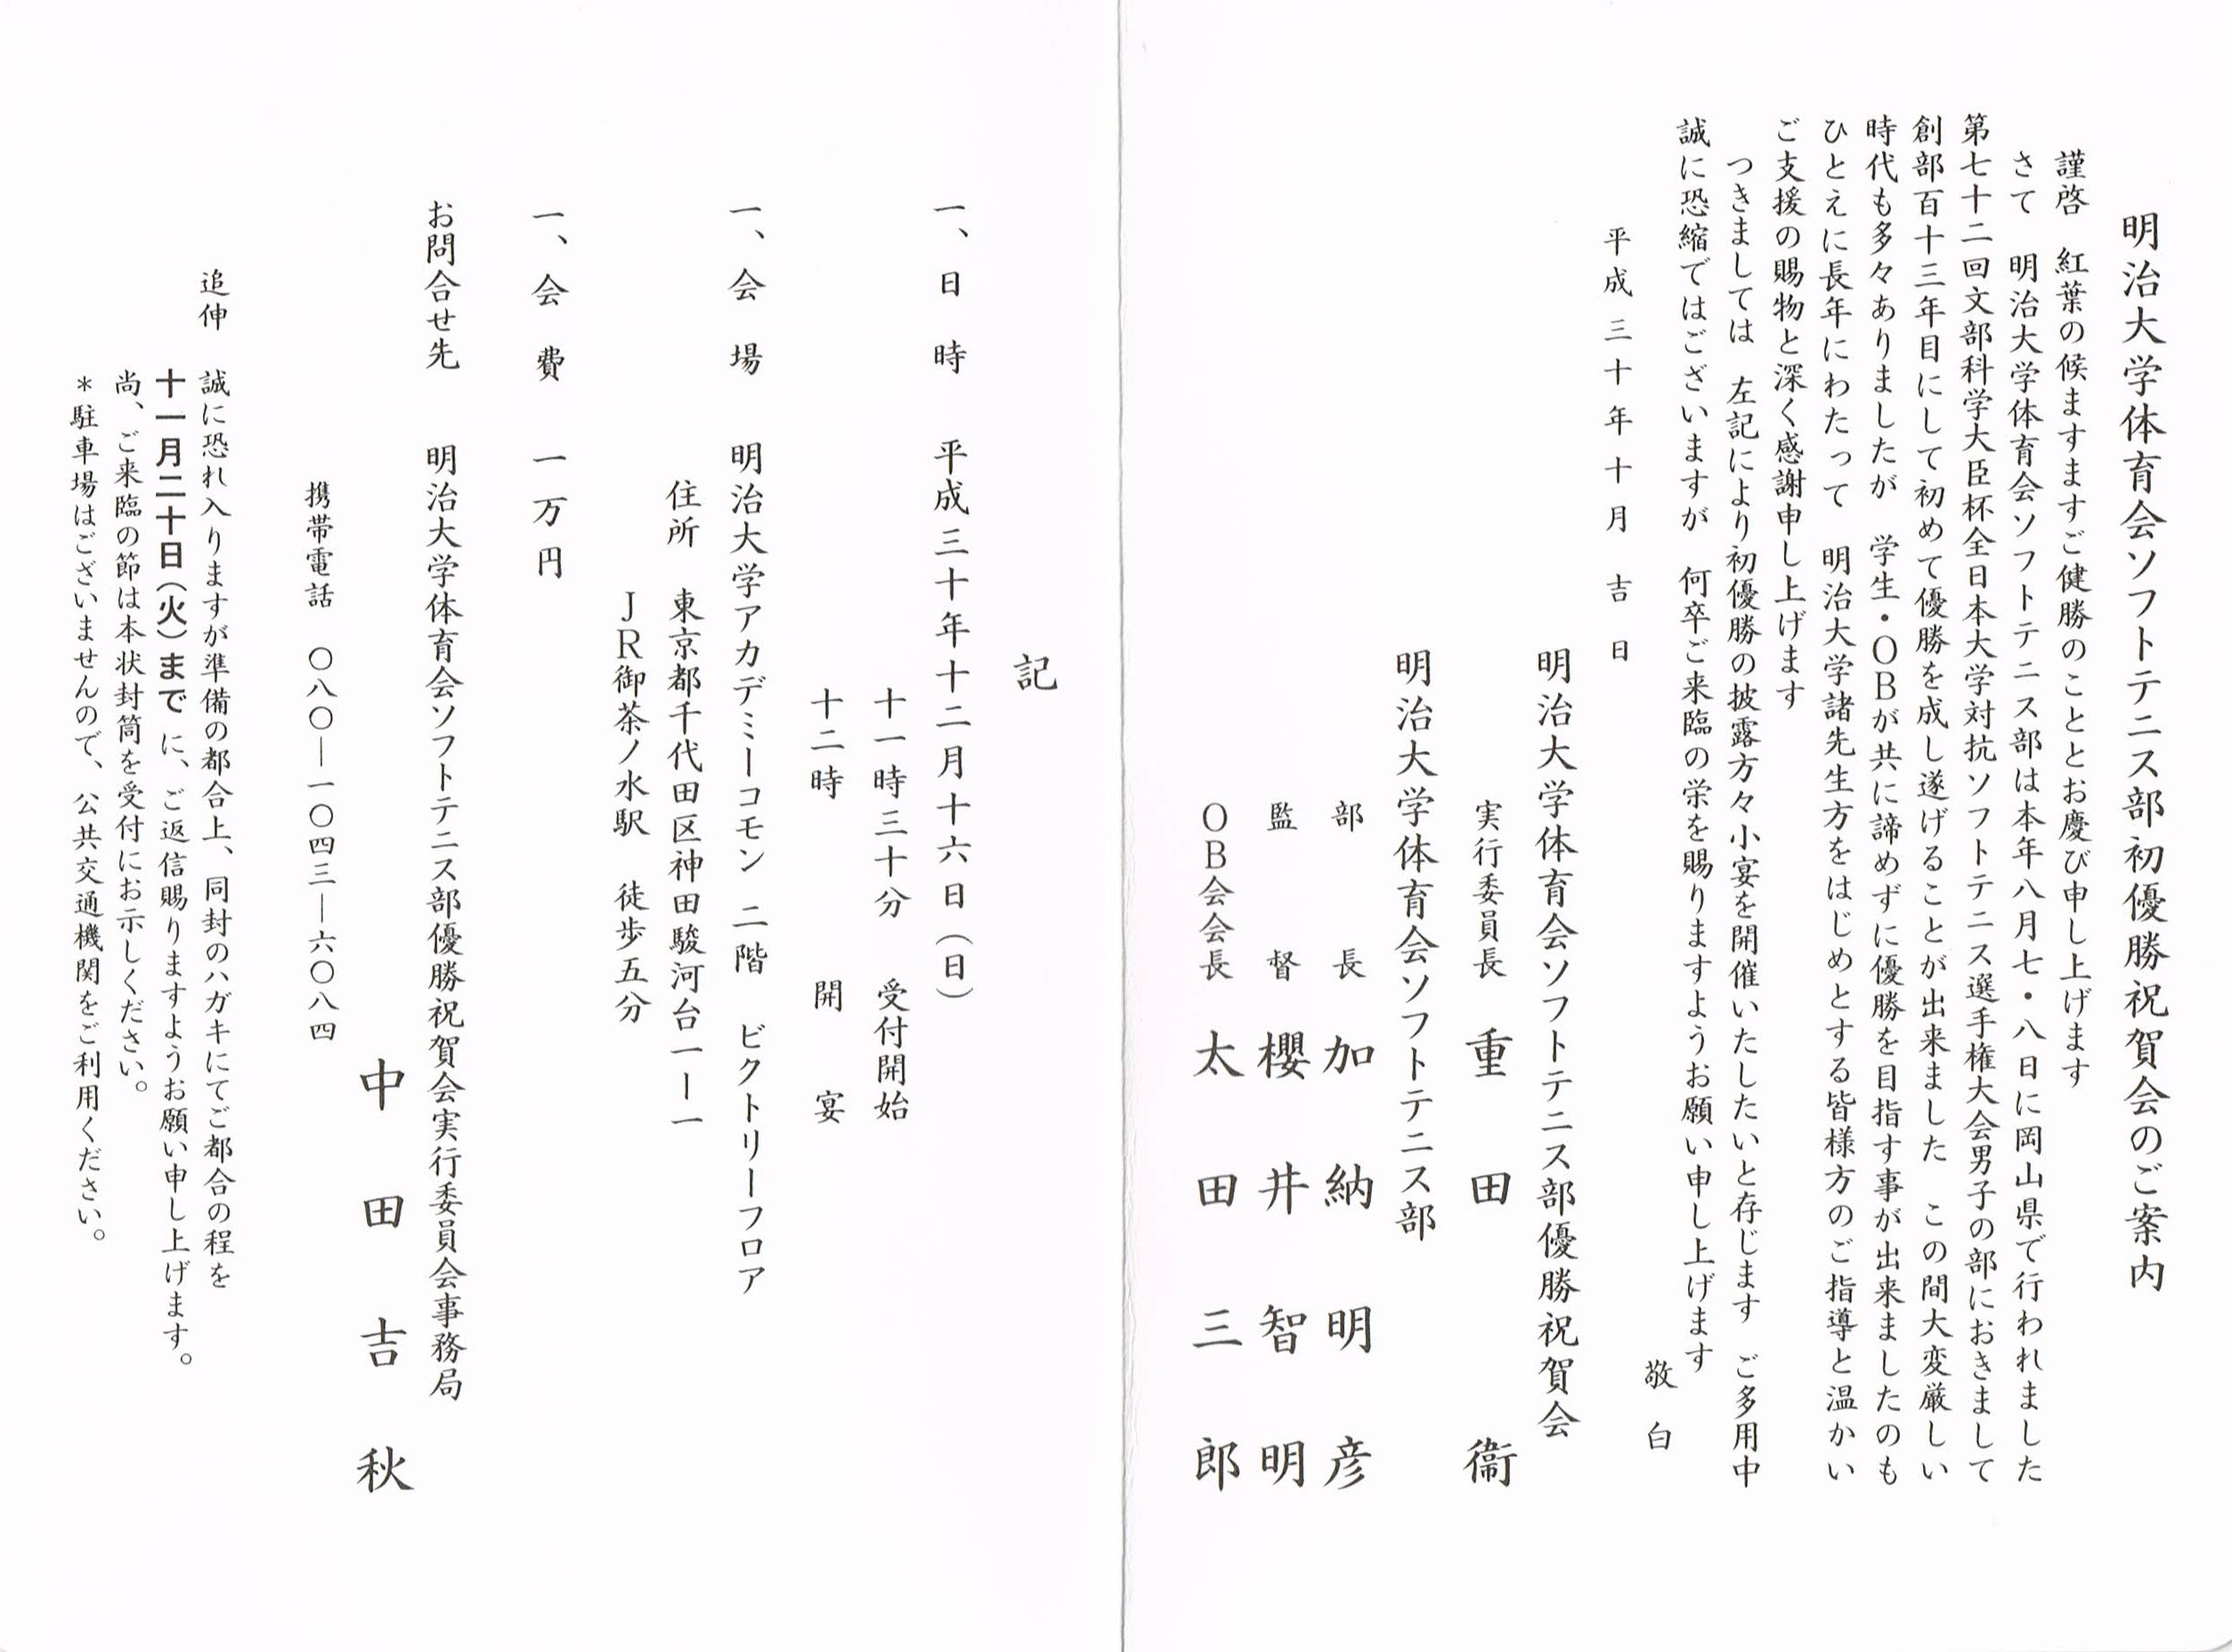 明治大学体育会ソフトテニス部初優勝祝賀会のご案内
謹啓　紅葉の候ますますご健勝のこととお慶び申し上げます
さて　明治大学体育会ソフトテニス部は本年八月七・八日に岡山県で行われました
第七十二回文部科学大臣杯全日本大学対抗ソフトテニス選手権大会男子の部におきまして
創部百十三年目にして初めて優勝を成し遂げることが出来ました　この間大変厳しい
時代も多々ありましたが　学生・ＯＢが共に諦めずに優勝を目指す事が出来ましたのも
ひとえに長年にわたって　明治大学諸先生方をはじめとする皆様方のご指導と温かい
ご支援の賜物と深く感謝申し上げます
つきましては　左記により初優勝の披露方々小宴を開催いたしたいと存じます　ご多用中
誠に恐縮ではございますが　何卒ご来臨の栄を賜りますようお願い申し上げます
敬白
平成三十年十月　吉　日
明治大学体育会ソフトテニス部優勝祝賀会
実行委員長　重田　衞
明治大学体育会ソフトテニス部
部　長　加納明彦
監　督　櫻井智明
ＯＢ会会長　太田三郎
記
一、日　時　平成三十年十二月十六日（日）
十一時三十分　受付開始
十二時　開　宴
一、会　場　明治大学アカデミーコモン　二階　ビクトリーフロア
住所　東京都千代田区神田駿河台一ー一
ＪＲ御茶ノ水駅　徒歩五分
一、会　費　一万円
お問合せ先　明治大学体育会ソフトテニス部優勝祝賀会実行委員会事務局
中田吉秋
携帯電話　〇八〇―一〇四三―六〇八四
追伸　誠に恐れ入りますが準備の都合上、同封のハガキにてご都合の程を
十一月二十日（火）までに、ご返信賜りますようお願い申し上げます。
尚、ご来臨の節は本状封筒を受付にお示しください。
＊駐車場はございませんので、公共交通機関をご利用ください。